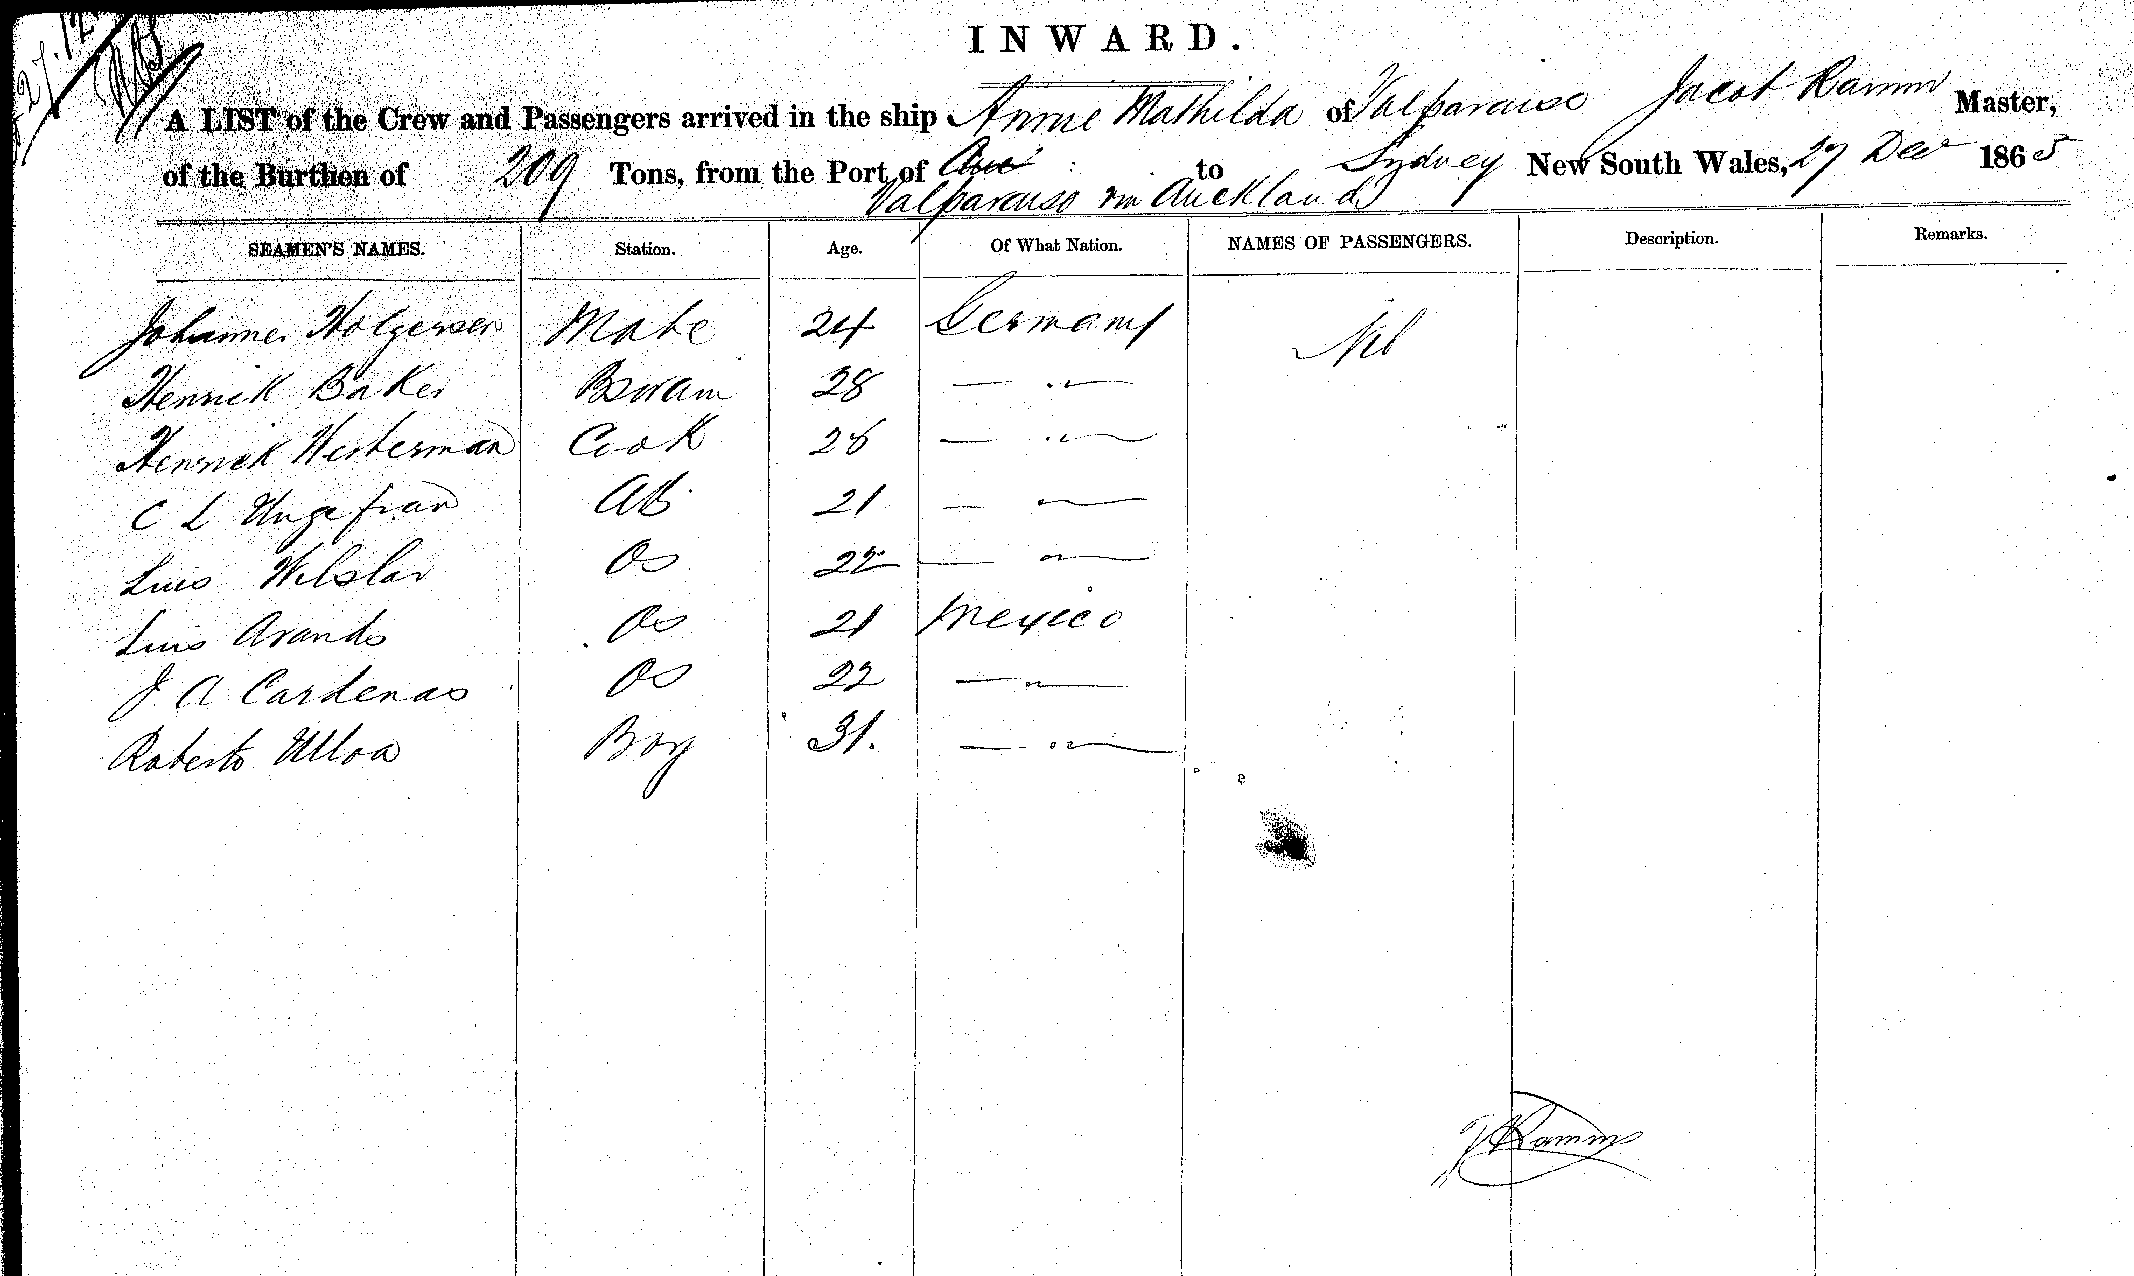 27.12
INWARD.
A LIST of the Crew and Passengers arrived in the ship Annie Mathilda of Valparaiso Jacob Ramm Master,
of the Burthen of 209 Tons, from the Port of Auc to Sydney New South Wales, 27 Dec 1865
Valparaiso via Auckland
SEAMEN'S NAMES. Station. Age. Of What Nation. NAMES OF PASSENGERS. Description. Remarks.
Johannes Holgersen Mate 24 Germany Nil
Henrick Baker Boswain 28 — " —
Henrick Westerman Cook 26 — " —
C L AB 21 — " —
Luis Os 22 — " —
Luis Arando Os 21 Mexico
J A Cardenas Os 22 — " —
Roberto Ulloa Boy 31. — " —
J Ramm